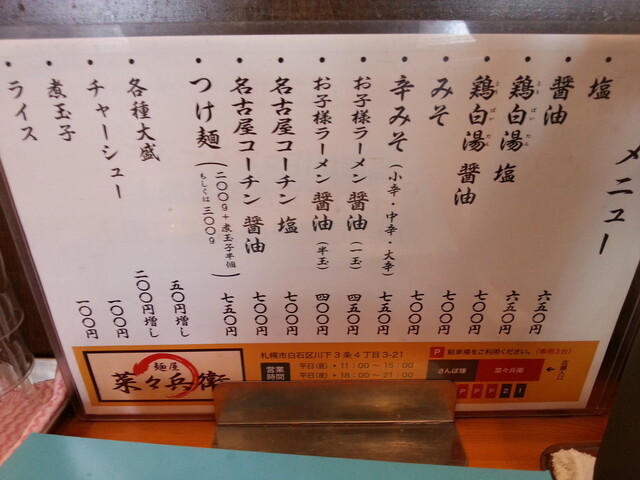 メニュー
・塩 六五〇円
・醤油 六五〇円
・鶏白湯 塩 七〇〇円
・鶏白湯 醤油 七〇〇円
・みそ 七〇〇円
・辛みそ（小辛・中辛・大辛） 七五〇円
・お子様ラーメン 醤油（一玉） 四五〇円
・お子様ラーメン 醤油（半玉） 四〇〇円
・名古屋コーチン 塩 七〇〇円
・名古屋コーチン 醤油 七〇〇円
・つけ麺（二〇〇g＋煮玉子半個 もしくは 三〇〇g） 七五〇円
・各種大盛 五〇円増し
・チャーシュー 二〇〇円増し
・煮玉子 一〇〇円
・ライス 一〇〇円
麺屋
菜々兵衛
札幌市白石区川下3条4丁目3-21
営業時間
平日(昼)・11:00〜15:00
平日(夜)・18:00〜21:00
P 駐車場をご利用ください。(専用3台)
さんぱ様 菜々兵衛
P P 2 1